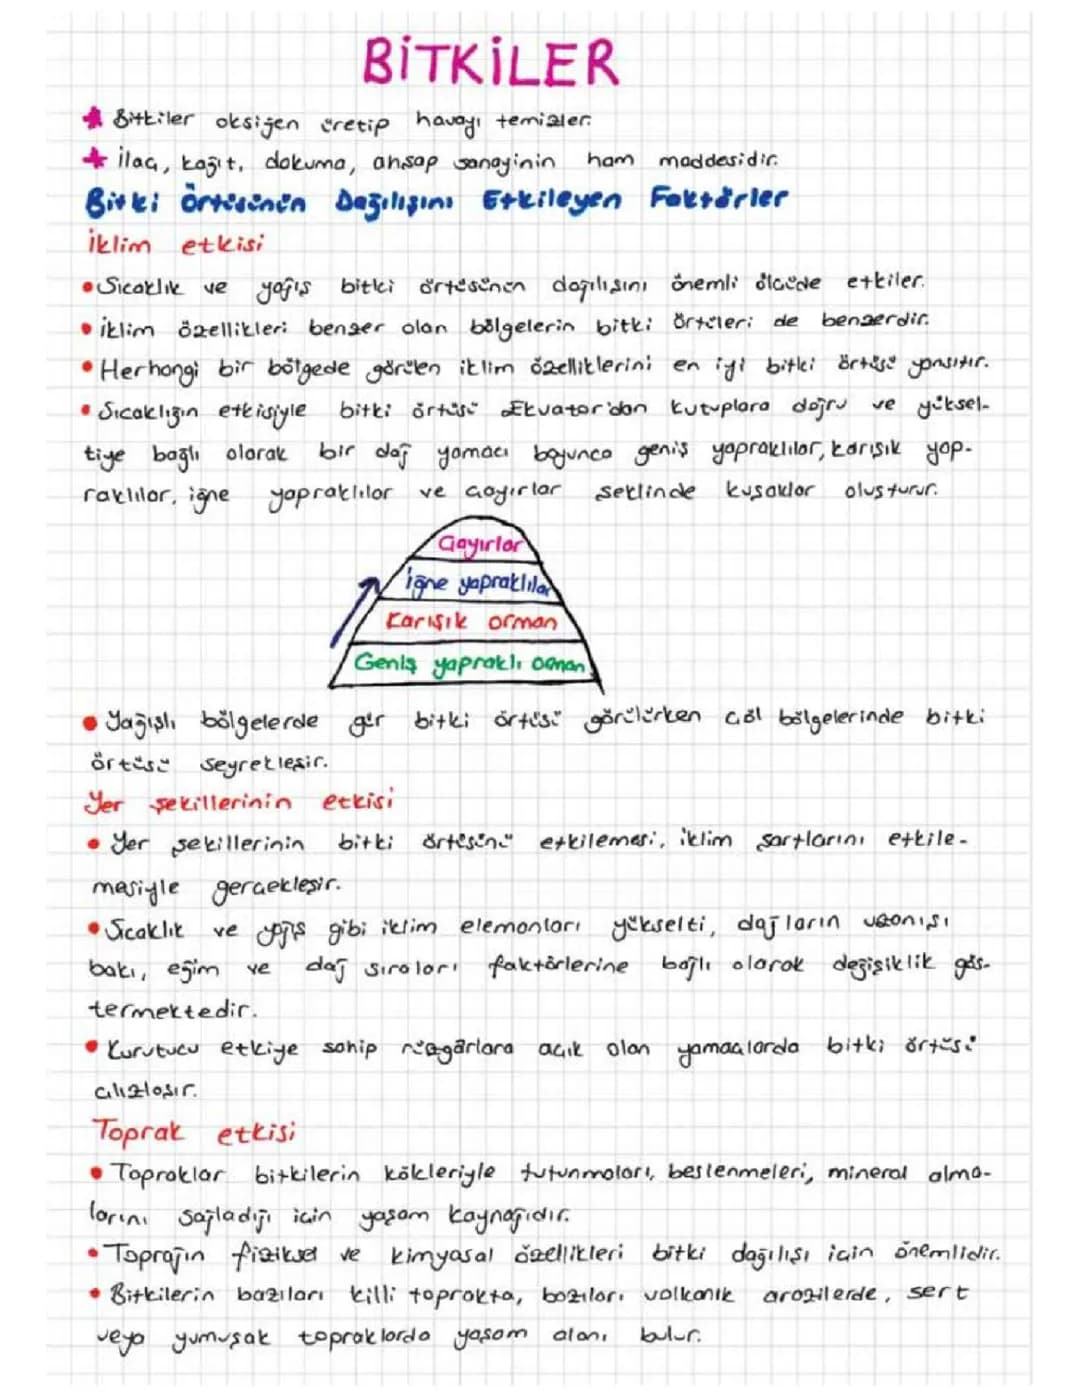 BİTKİLER
Bitkiler oksijen üretip havayı temizler.
İlaç, kağıt, dokuma, ahşap sanayinin ham maddesidir.
Bitki Örtüsünün Dağılışını Etkileyen Faktörler
İklim etkisi
• Sıcaklık ve yağış bitki örtüsünün dağılışını önemli ölçüde etkiler.
• İklim özellikleri benzer olan bölgelerin bitki örtüleri de benzerdir.
• Herhangi bir bölgede görülen iklim özelliklerini en iyi bitki örtüsü yansıtır.
• Sıcaklığın etkisiyle bitki örtüsü Ekvator'dan kutuplara doğru ve yüksel-
tiye bağlı olarak bir dağ yamacı boyunca geniş yapraklılar, karışık yap-
raklılar, iğne yapraklılar ve çayırlar şeklinde kuşaklar oluşturur.
Çayırlar
İğne yapraklılar
Karışık orman
Geniş yapraklı orman
• Yağışlı bölgelerde gür bitki örtüsü görülürken çöl bölgelerinde bitki
örtüsü seyrekleşir.
Yer şekillerinin etkisi
• Yer şekillerinin bitki örtüsünü etkilemesi, iklim şartlarını etkile-
mesiyle gerçekleşir.
• Sıcaklık ve yağış gibi iklim elemanları yükselti, dağların uzanışı
bakı, eğim ve dağ sıraları faktörlerine bağlı olarak değişiklik gös-
termektedir.
• Kurutucu etkiye sahip rüzgârlara açık olan yamaçlarda bitki örtüsü
cılızlaşır.
Toprak etkisi
• Topraklar bitkilerin kökleriyle tutunmaları, beslenmeleri, mineral alma-
larını sağladığı için yaşam kaynağıdır.
• Toprağın fiziksel ve kimyasal özellikleri bitki dağılışı için önemlidir.
• Bitkilerin bazıları killi toprakta, bazıları volkanik arazilerde, sert
veya yumuşak topraklarda yaşam alanı bulur.